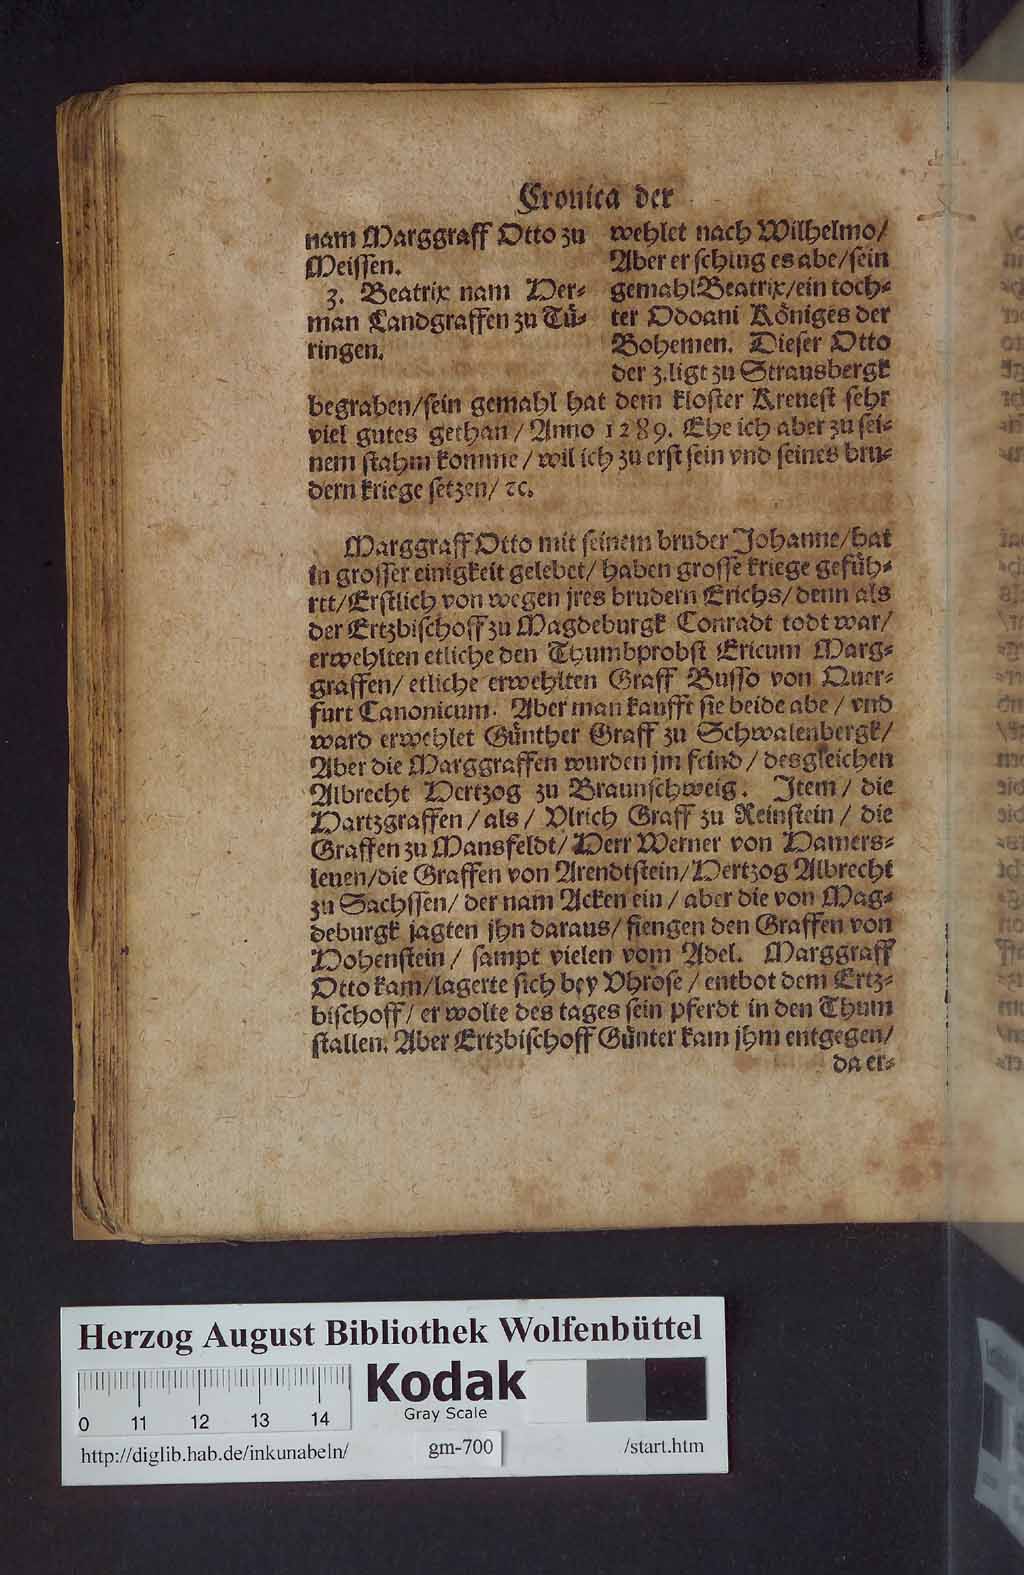 Cronica der
nam Marggraff Otto zu
Meissen.
3. Beatrix nam Her-
man Landgraffen zu Tü-
ringen.
wehlet nach Wilhelmo/
Aber er schlug es abe/sein
gemahl Beatrix/ein toch-
ter Odoani Königes der
Bohemen. Dieser Otto
der 3. ligt zu Strausbergk
begraben/sein gemahl hat dem kloster Kreuest sehr
viel gutes gethan/ Anno 1289. Ehe ich aber zu sei-
nem stahm komme/ wil ich zu erst sein vnd seines bru-
dern kriege setzen/ ꝛc.
Marggraff Otto mit seinem bruder Johanne/hat
in grosser einigkeit gelebet/ haben grosse kriege gefüh-
ret/Erstlich von wegen jres brudern Erichs/ denn als
der Ertzbischoff zu Magdeburgk Conradt todt war/
erwehlten etliche den Thumbprobst Ericum Marg-
graffen/ etliche erwehlten Graff Busso von Quer-
furt Canonicum. Aber man kaufft sie beide abe/ vnd
ward erwehlet Günther Graff zu Schwalenbergk/
Aber die Marggraffen wurden jm feind/ desgleichen
Albrecht Hertzog zu Braunschweig. Item/ die
Hartzgraffen/ als/ Vlrich Graff zu Reinstein/ die
Graffen zu Mansfeldt/ Herr Werner von Hamers-
leuen/die Graffen von Arendtstein/Hertzog Albrecht
zu Sachssen/ der nam Acken ein/ aber die von Mag-
deburgk jagten jhn daraus/ fiengen den Graffen von
Hohenstein/ sampt vielen vom Adel. Marggraff
Otto kam/lagerte sich bey Vhrose/ entbot dem Ertz-
bischoff/ er wolte des tages sein pferdt in den Thum
stallen. Aber Ertzbischoff Günter kam jhm entgegen/
da er-
Herzog August Bibliothek Wolfenbüttel
0 11 12 13 14
Kodak
Gray Scale
http://diglib.hab.de/inkunabeln/ gm-700 /start.htm